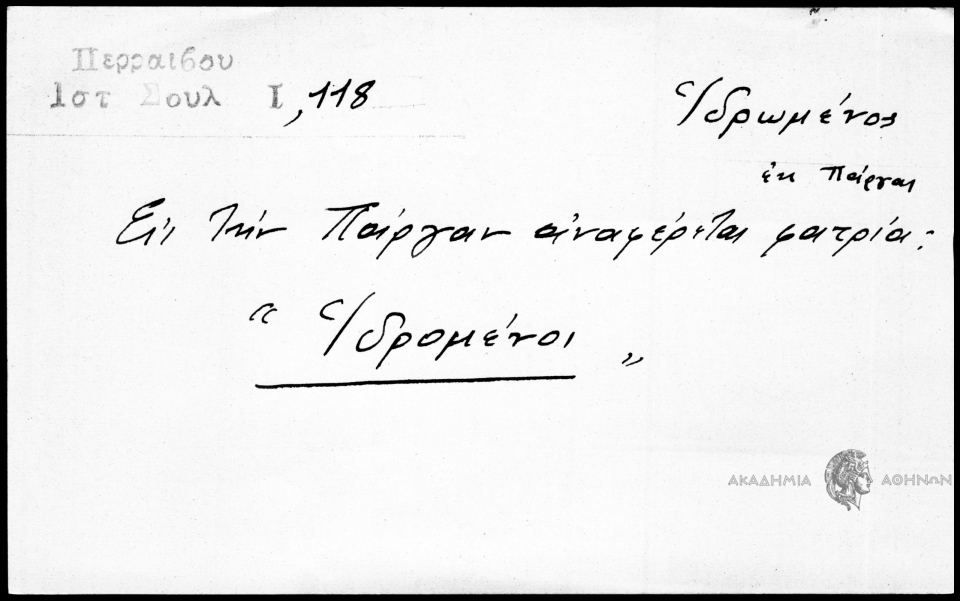 Περραιβου
Ιστ Σουλ Ι, 118
Ἱδρωμένος
ἐκ Πάργας
Εἰς τὴν Πάργαν ἀναφέρεται φατρία:
“ Ἱδρομένοι „
ΑΚΑΔΗΜΙΑ ΑΘΗΝΩΝ